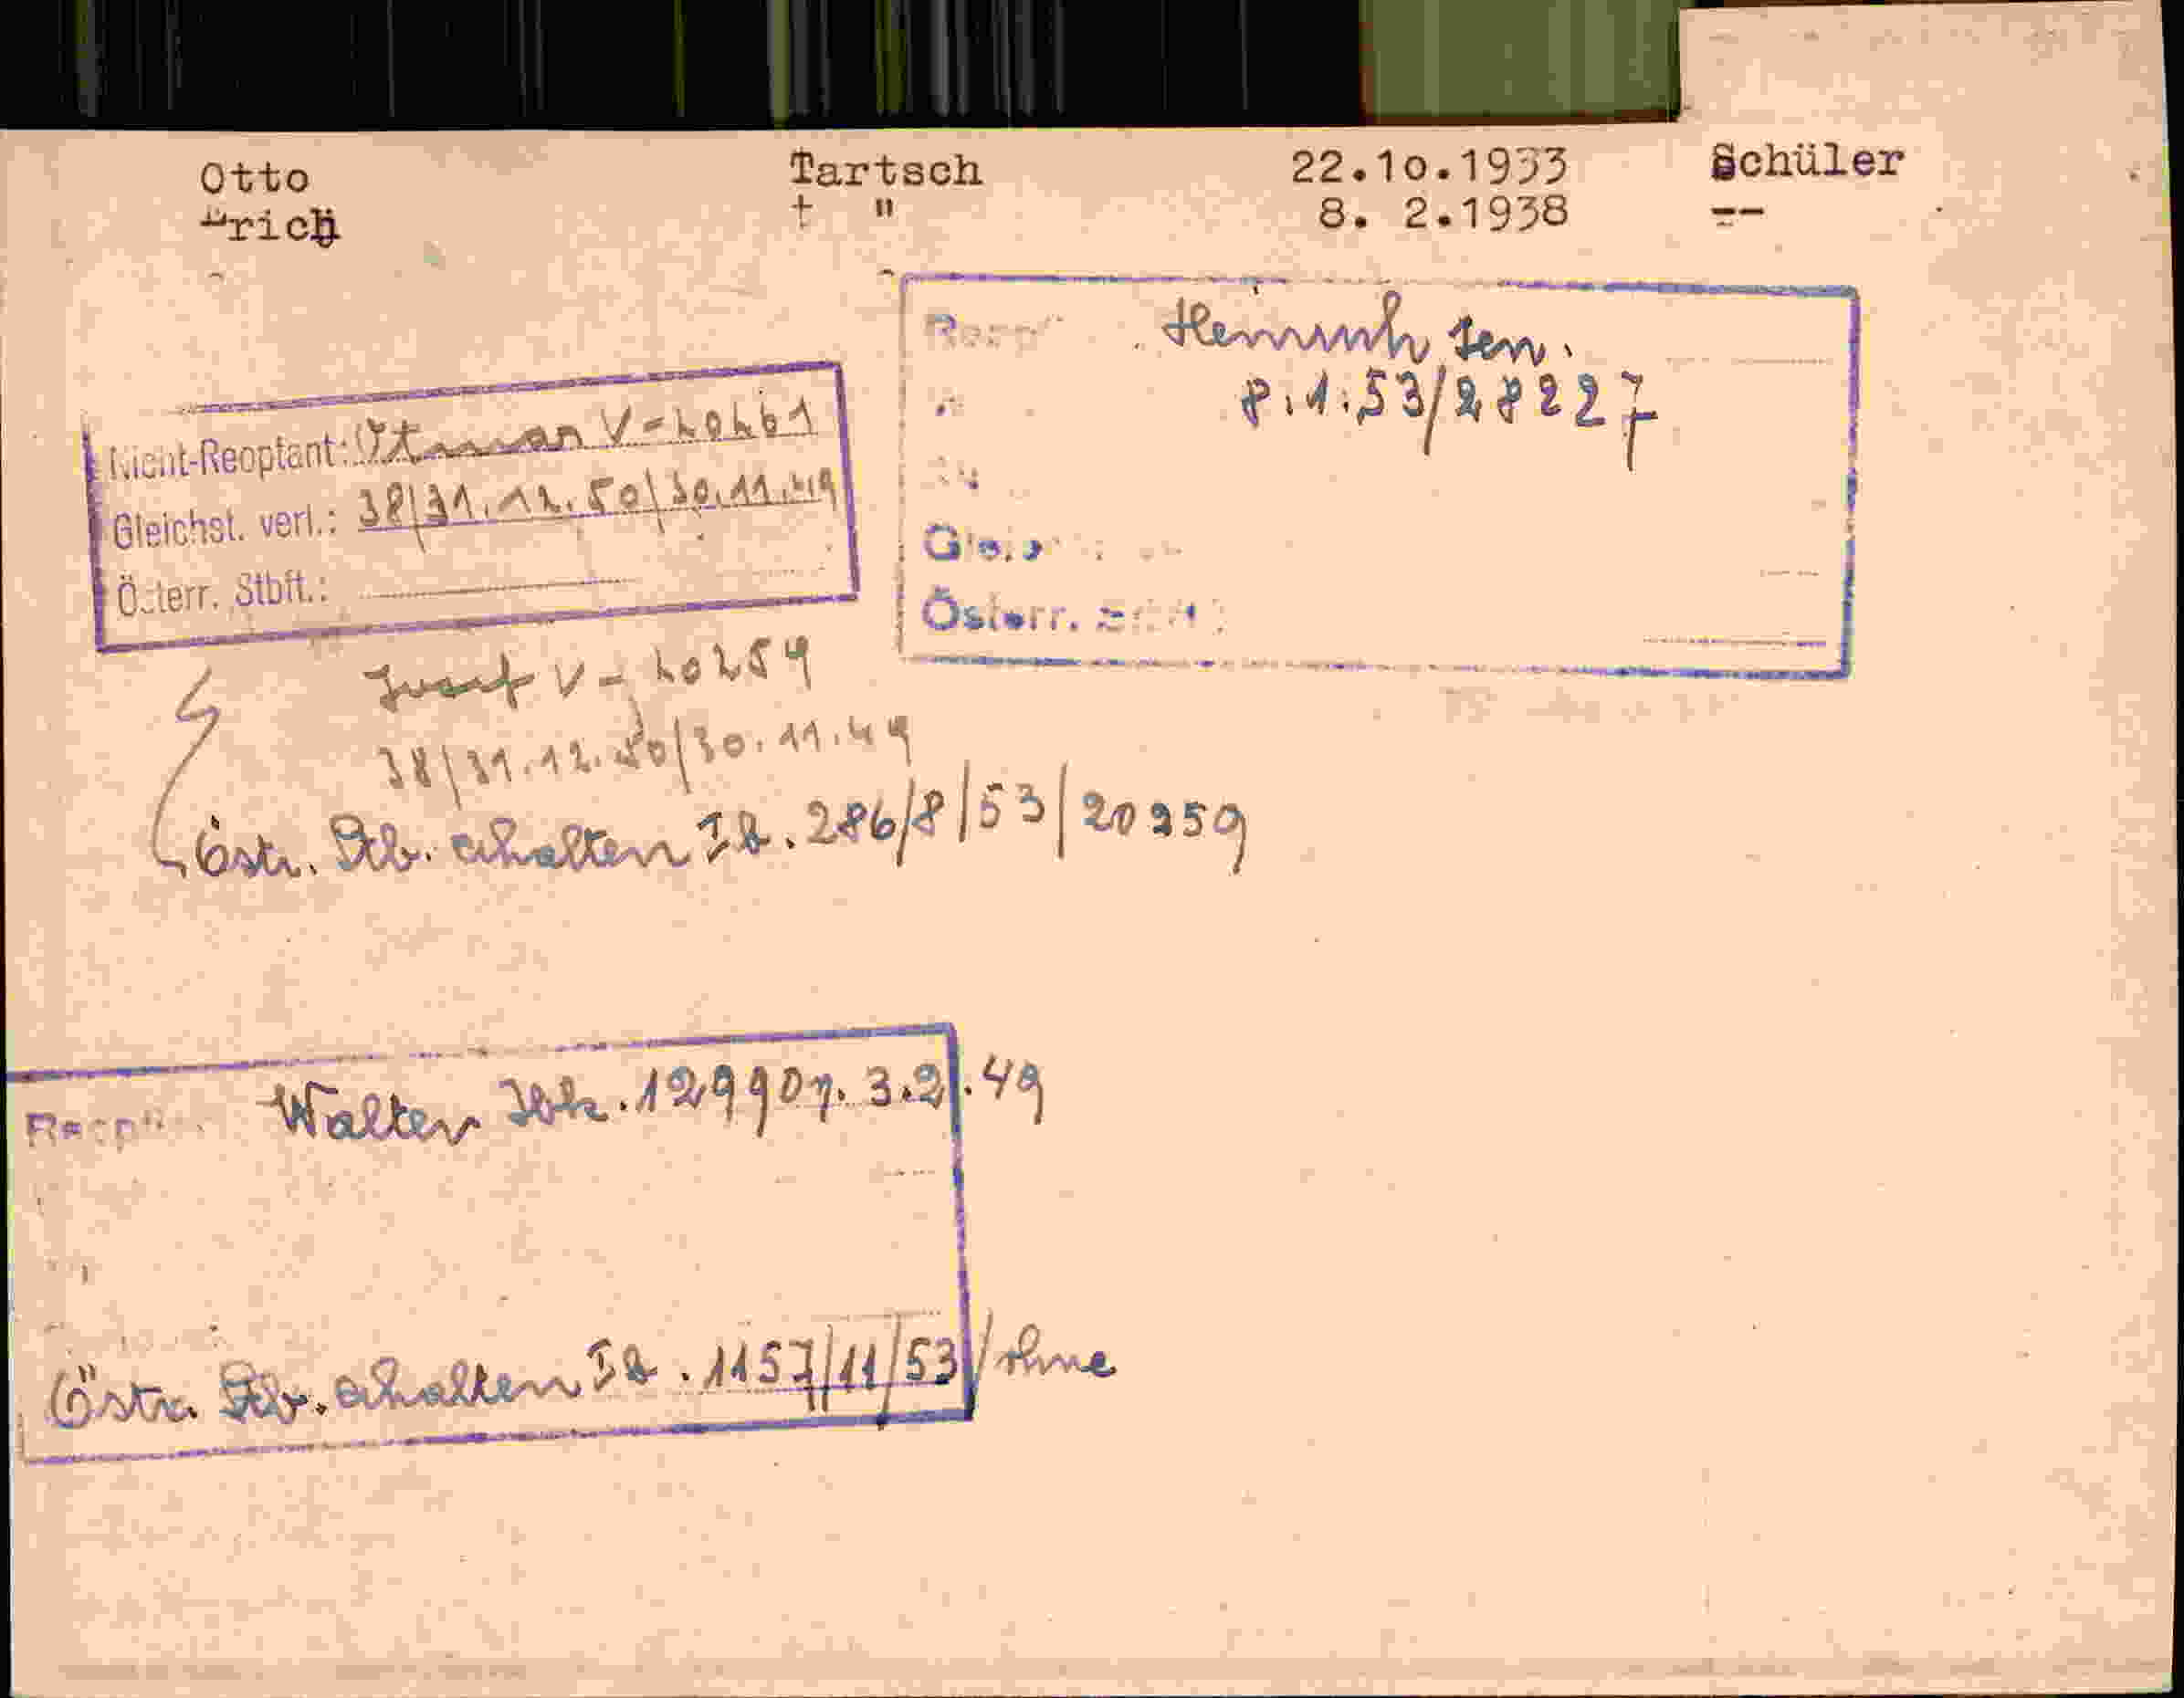 Otto Tartsch 22.1o.1933 Schüler
Erich + " 8. 2.1938 --
Heinrich sen.
8.1.53/28227
Nicht-Reoptant: Otmar V-20261
Gleichst. verl.: 38/31.12.50/30.11.49
Österr. Stbft.:
Gleichst.
Österr.
Josef V-20259
38/31.12.50/30.11.49
Östr. Stb. erhalten I a. 286/8/53/20259
Walter 129907. 3.2.49
Östr. Stb. erhalten I a. 1157/11/53/ohne